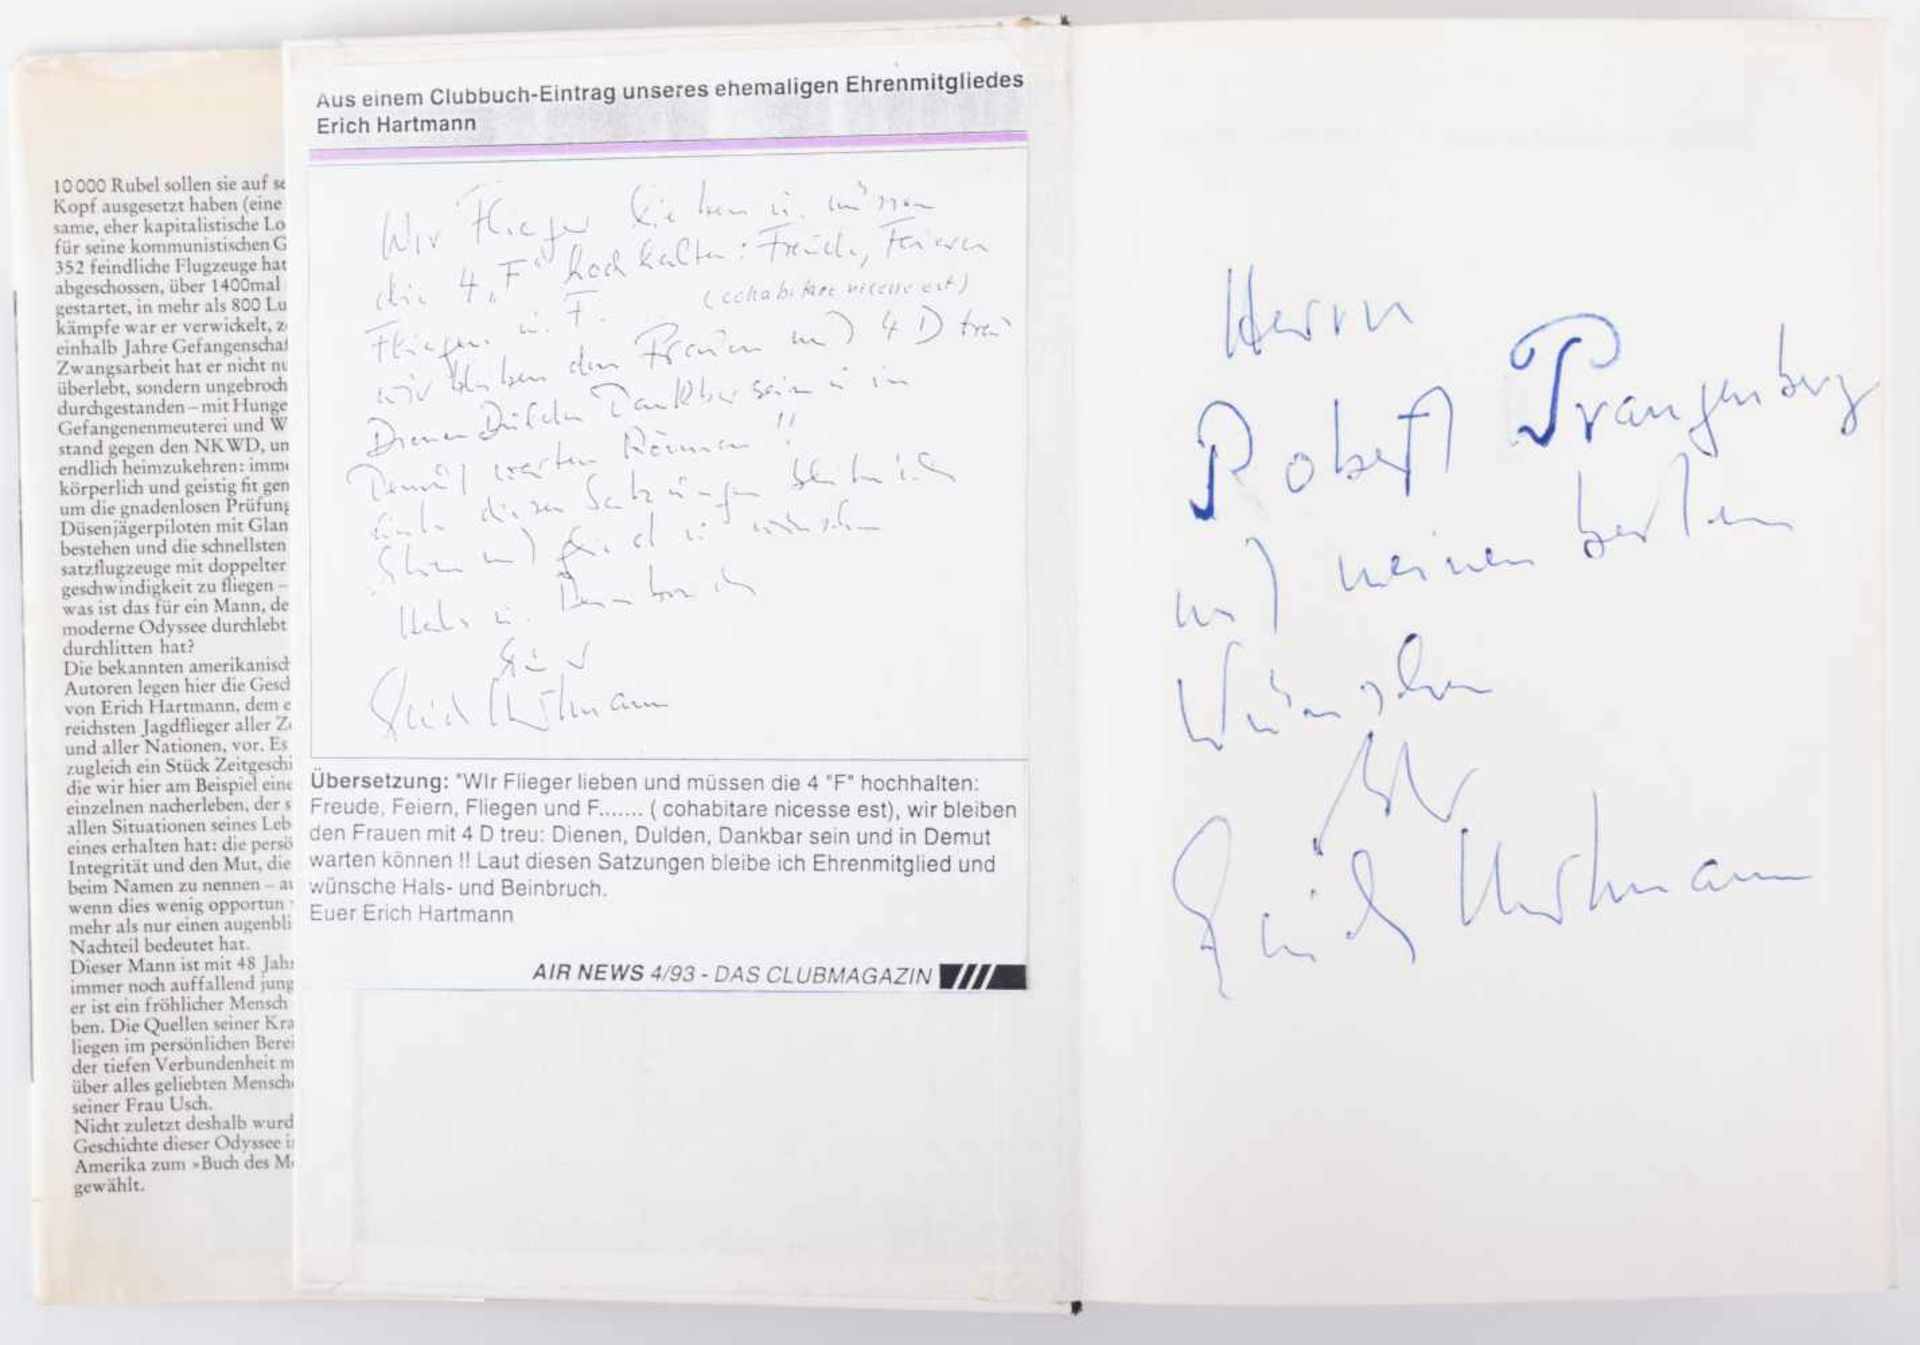 10 000 Rubel sollen sie auf se
Kopf ausgesetzt haben (eine
same, eher kapitalistische Lo
für seine kommunistischen G
352 feindliche Flugzeuge hat
abgeschossen, über 1400mal
gestartet, in mehr als 800 Lu
kämpfe war er verwickelt, z
einhalb Jahre Gefangenschaf
Zwangsarbeit hat er nicht nu
überlebt, sondern ungebroch
durchgestanden – mit Hunge
Gefangenenmeuterei und W
stand gegen den NKWD, un
endlich heimzukehren: imme
körperlich und geistig fit gen
um die gnadenlosen Prüfung
Düsenjägerpiloten mit Glan
bestehen und die schnellsten
satzflugzeuge mit doppelter
geschwindigkeit zu fliegen –
was ist das für ein Mann, de
moderne Odyssee durchlebt
durchlitten hat?
Die bekannten amerikanisch
Autoren legen hier die Gesch
von Erich Hartmann, dem e
reichsten Jagdflieger aller Ze
und aller Nationen, vor. Es
zugleich ein Stück Zeitgeschi
die wir hier am Beispiel eine
einzelnen nacherleben, der s
allen Situationen seines Leb
eines erhalten hat: die persö
Integrität und den Mut, die
beim Namen zu nennen – au
wenn dies wenig opportun
mehr als nur einen augenbli
Nachteil bedeutet hat.
Dieser Mann ist mit 48 Jahr
immer noch auffallend jung
er ist ein fröhlicher Mensch
ben. Die Quellen seiner Kra
liegen im persönlichen Berei
der tiefen Verbundenheit m
über alles geliebten Mensche
seiner Frau Usch.
Nicht zuletzt deshalb wurd
Geschichte dieser Odyssee i
Amerika zum »Buch des M
gewählt.
Aus einem Clubbuch-Eintrag unseres ehemaligen Ehrenmitgliedes
Erich Hartmann
Wir Flieger lieben u. müssen
die 4 „F" hochhalten: Freude, Feiern
(cohabitare nicesse est)
Fliegen u. F. ...
wir bleiben den Frauen mit 4 D treu
Dienen Dulden Dankbar sein u in
Demut warten können !!
laut diesen Satzungen bleibe ich
wünschen
Hals u. Beinbruch
Euer
Erich Hartmann
Übersetzung: "WIr Flieger lieben und müssen die 4 "F" hochhalten:
Freude, Feiern, Fliegen und F....... ( cohabitare nicesse est), wir bleiben
den Frauen mit 4 D treu: Dienen, Dulden, Dankbar sein und in Demut
warten können !! Laut diesen Satzungen bleibe ich Ehrenmitglied und
wünsche Hals- und Beinbruch.
Euer Erich Hartmann
AIR NEWS 4/93 - DAS CLUBMAGAZIN
Herrn
Robert Prangenberg
mit meinen besten
Wünschen
Ihr
Erich Hartmann